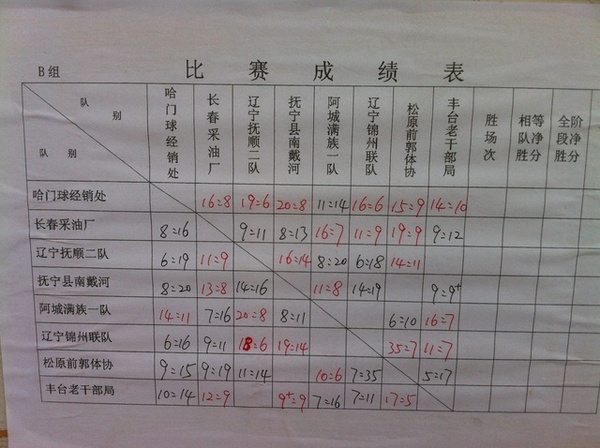 B组 比赛成绩表
队别 队别 哈门球经销处 长春采油厂 辽宁抚顺二队 抚宁县南戴河 阿城满族一队 辽宁锦州联队 松原前郭体协 丰台老干部局 胜场次 相等队净胜分 全阶段净胜分
哈门球经销处 16=8 19=6 20=8 11=14 16=6 15=9 14=10
长春采油厂 8=16 9=11 8=13 16=7 11=9 19=9 9=12
辽宁抚顺二队 6=19 11=9 16=14 8=20 6=18 14=11
抚宁县南戴河 8=20 13=8 14=16 11=8 14=19 9=9+
阿城满族一队 14=11 7=16 20=8 8=11 6=10 16=7
辽宁锦州联队 6=16 9=11 18=6 19=14 35=7 11=7
松原前郭体协 9=15 9=19 11=14 10=6 7=35 5=17
丰台老干部局 10=14 12=9 9+=9 7=16 7=11 17=5